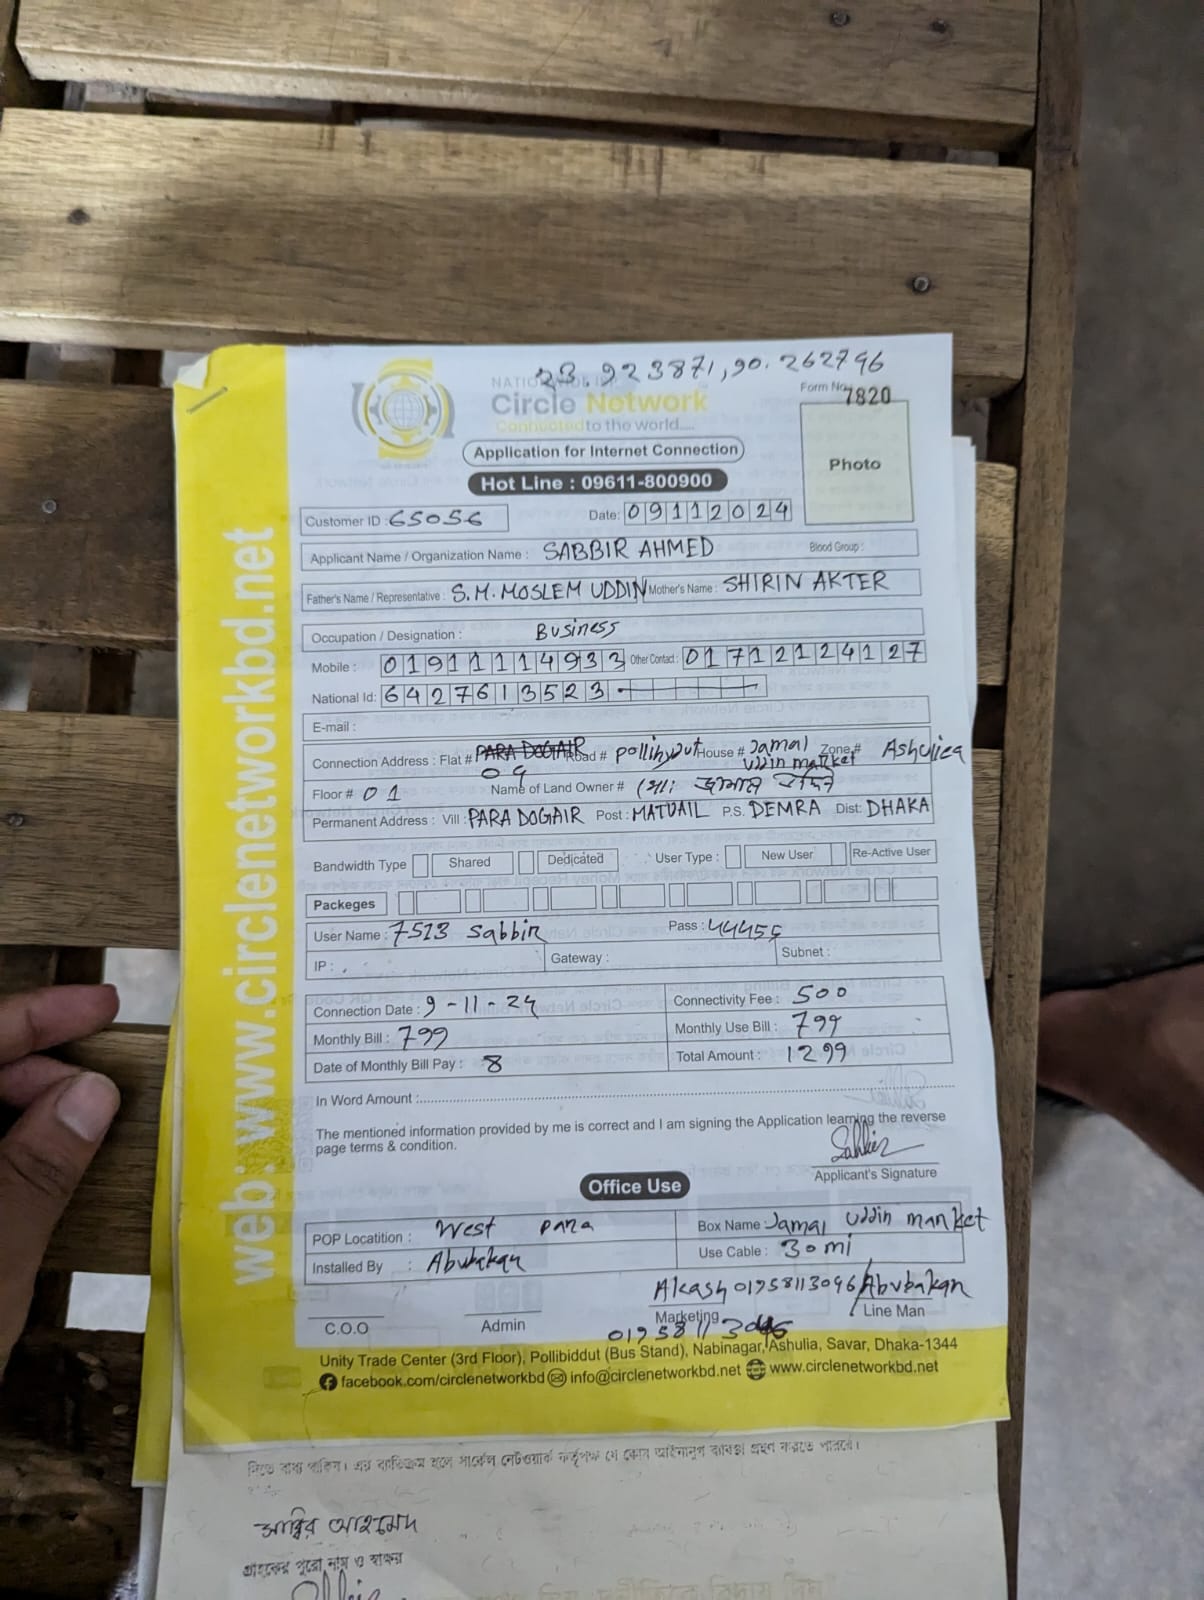 23.923871,90.262796
Form No. 7820
Circle Network
Connected to the world....
Application for Internet Connection
Photo
Hot Line : 09611-800900
Customer ID : 65056
Date: 09112024
Applicant Name / Organization Name : SABBIR AHMED
Blood Group :
Father's Name / Representative : S.M. MOSLEM UDDIN Mother's Name : SHIRIN AKTER
Occupation / Designation : Business
Mobile : 01911114933 Other Contact : 01712124127
National Id: 6427613523
E-mail :
Connection Address : Flat # PARA DOGAIR 09 Road # pollibydut House # Jamal Uddin market Zone # Ashuliea
Floor # 01 Name of Land Owner # মোঃ জামাল উদ্দিন
Permanent Address : Vill : PARA DOGAIR Post : MATUAIL P.S. DEMRA Dist: DHAKA
Bandwidth Type Shared Dedicated User Type : New User Re-Active User
Packeges
User Name : 7513 sabbir Pass :
IP : Gateway : Subnet :
Connection Date : 9-11-24 Connectivity Fee : 500
Monthly Bill : 799 Monthly Use Bill : 799
Date of Monthly Bill Pay : 8 Total Amount : 1299
In Word Amount :
The mentioned information provided by me is correct and I am signing the Application learning the reverse
page terms & condition.
Sabbir
Applicant's Signature
Office Use
POP Locatition : West para Box Name Jamal Uddin market
Installed By : Abubakar Use Cable : 30 mi
Akash 01758113096 Abubakar
C.O.O Admin Marketing Line Man
Unity Trade Center (3rd Floor), Pollibiddut (Bus Stand), Nabinagar, Ashulia, Savar, Dhaka-1344
facebook.com/circlenetworkbd info@circlenetworkbd.net www.circlenetworkbd.net
web: www.circlenetworkbd.net
দিতে বাধ্য থাকিব। এর ব্যতিক্রম হলে সার্কেল নেটওয়ার্ক কর্তৃপক্ষ যে কোন আইনানুগ ব্যবস্থা গ্রহণ করতে পারবে।
সাব্বির আহমেদ
গ্রাহকের পুরো নাম ও স্বাক্ষর